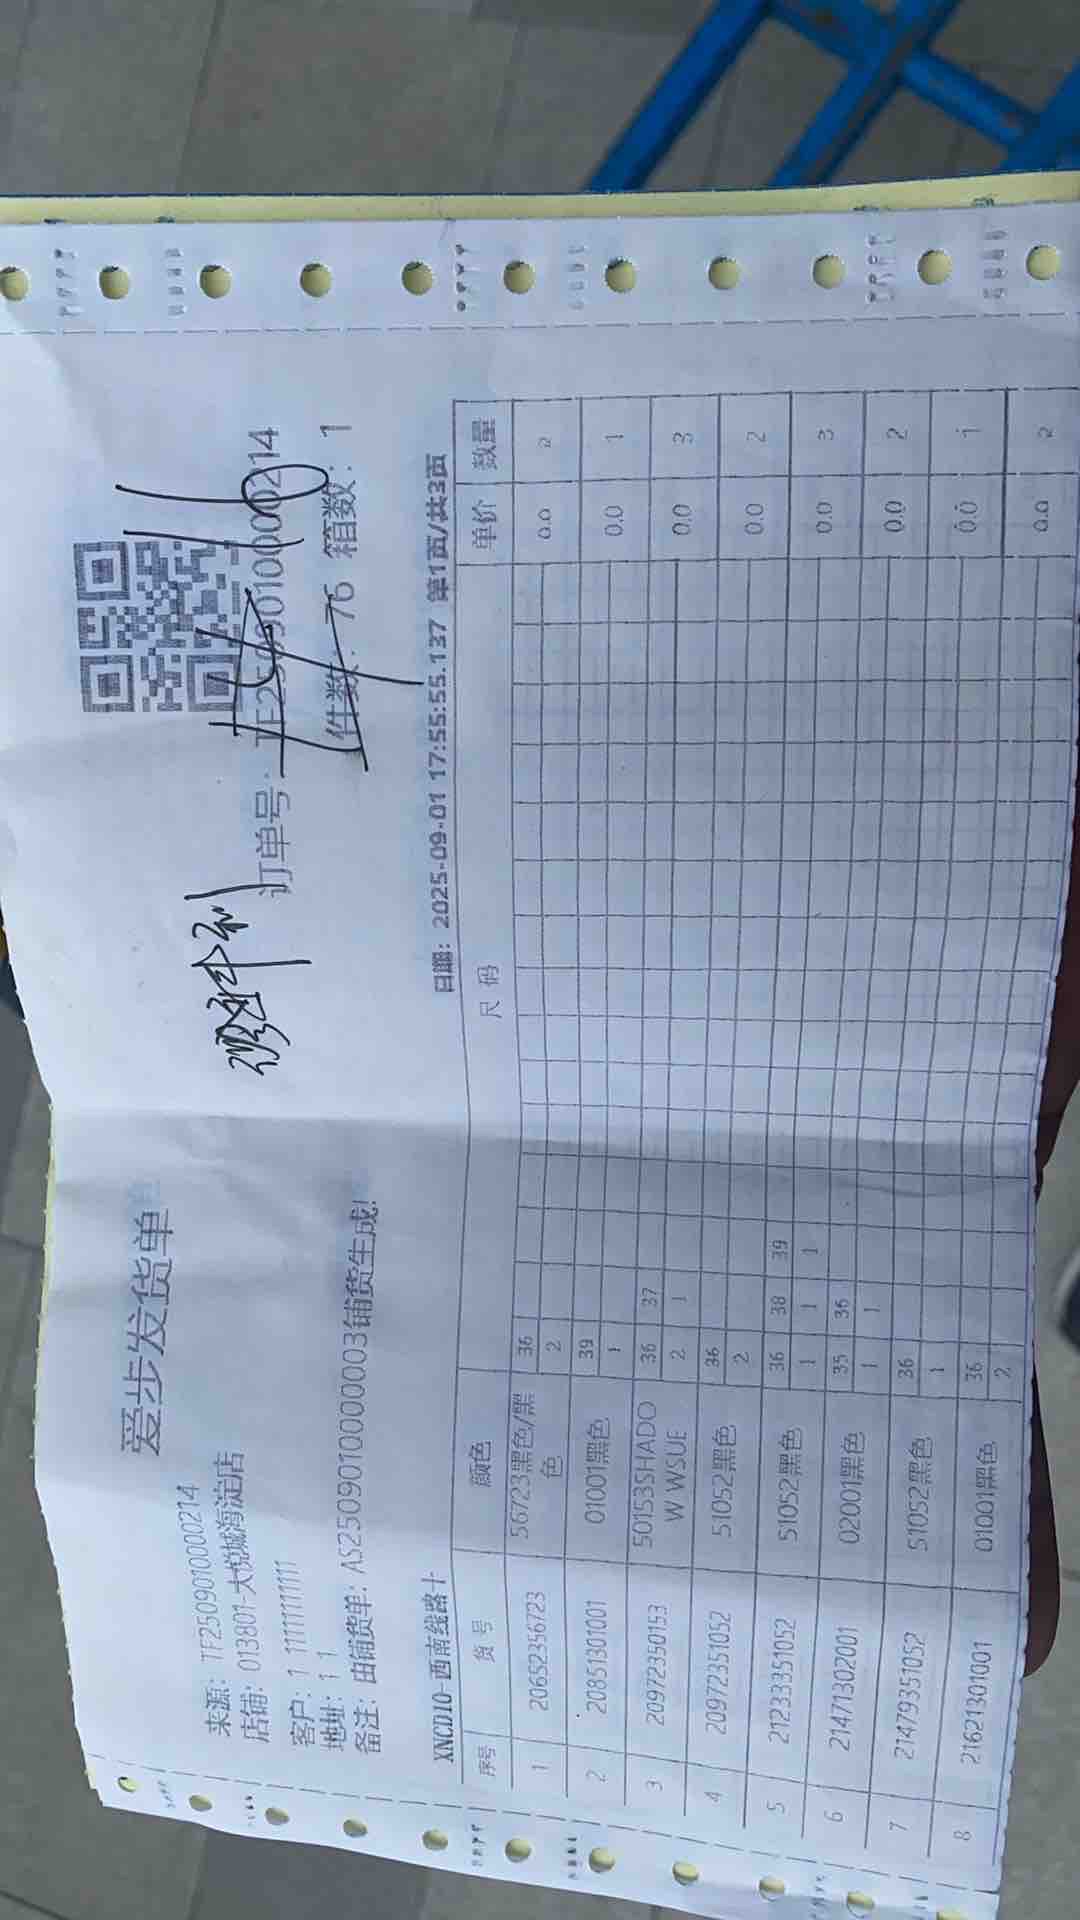 爱步发货单
来源: TF2509010000214
店铺: 013801-大悦城海淀店
客户: 1 11111111111
地址: 1 1
备注: 由铺货单: AS2509010000003铺货生成!
订单号: TF2509010000214
件数: 76 箱数: 1
XNCD10-西南线路十 日期: 2025-09-01 17:55:55.137 第1页/共3页
序号 货号 颜色 尺码 单价 数量
1 20652356723 56723黑色/黑色 36 0.0 2
2
2 20851301001 01001黑色 39 0.0 1
1
3 20972350153 50153SHADOW WSUE 36 37 0.0 3
2 1
4 20972351052 51052黑色 36 0.0 2
2
5 21233351052 51052黑色 36 38 39 0.0 3
1 1 1
6 21471302001 02001黑色 35 36 0.0 2
1 1
7 21479351052 51052黑色 36 0.0 1
1
8 21621301001 01001黑色 36 0.0 2
2